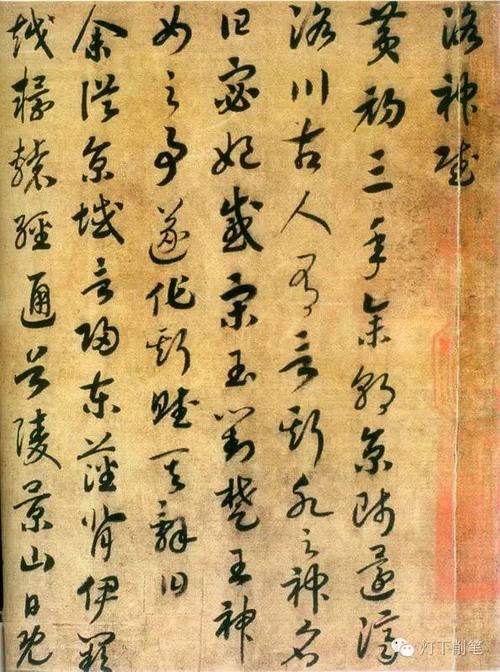 洛神賦
黄初三年余朝京師還濟
洛川古人有言斯水之神名
曰宓妃感宋玉對楚王神
女之事遂作斯賦其辭曰
余從京域言歸東藩背伊闕
越轘轅經通谷陵景山日既
灯下削笔